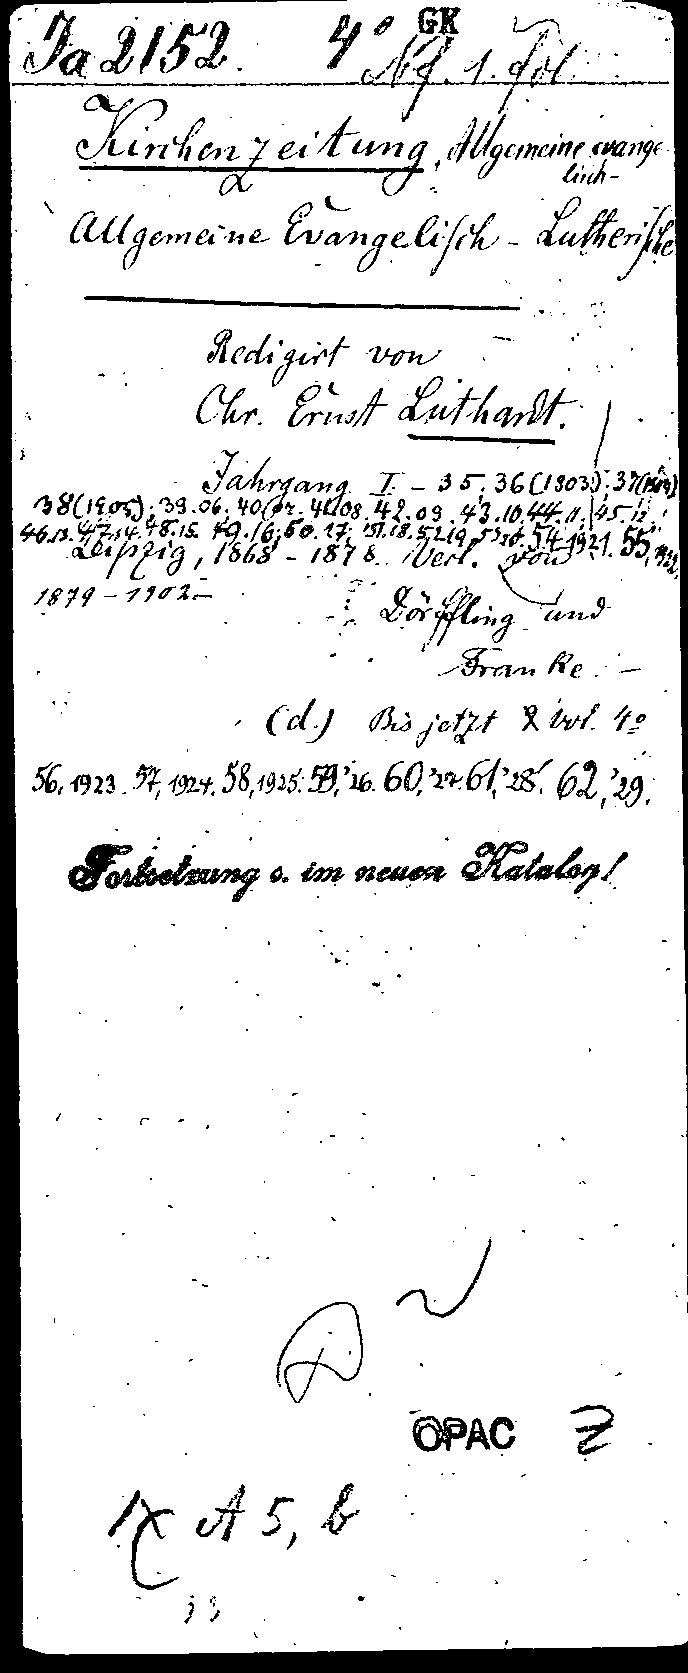 GK
Ja 2152. 4° Nf. 1. fol.
Kirchenzeitung, Allgemeine evange-
lisch-
Allgemeine Evangelisch - Lutherische
Redigirt von
Chr. Ernst Luthardt.
Jahrgang I. - 35. 36(1903). 37(1904)
38(1905). 39.06. 40.07. 41.08. 42.09. 43.10. 44.11. 45.12.
46.13. 47.14. 48.15. 49.16. 50.17. 51.18. 52.19. 53.20. 54,1921. 55,1922.
Leipzig, 1868 - 1878. Verl. von
1879 - 1902 -
Dörffling und
Franke. -
(d.) Bis jetzt vol. 4°
56, 1923. 57, 1924. 58, 1925. 59, '26. 60, '27. 61, '28. 62, '29.
Fortsetzung s. im neuen Katalog!
OPAC Z
A 5, b